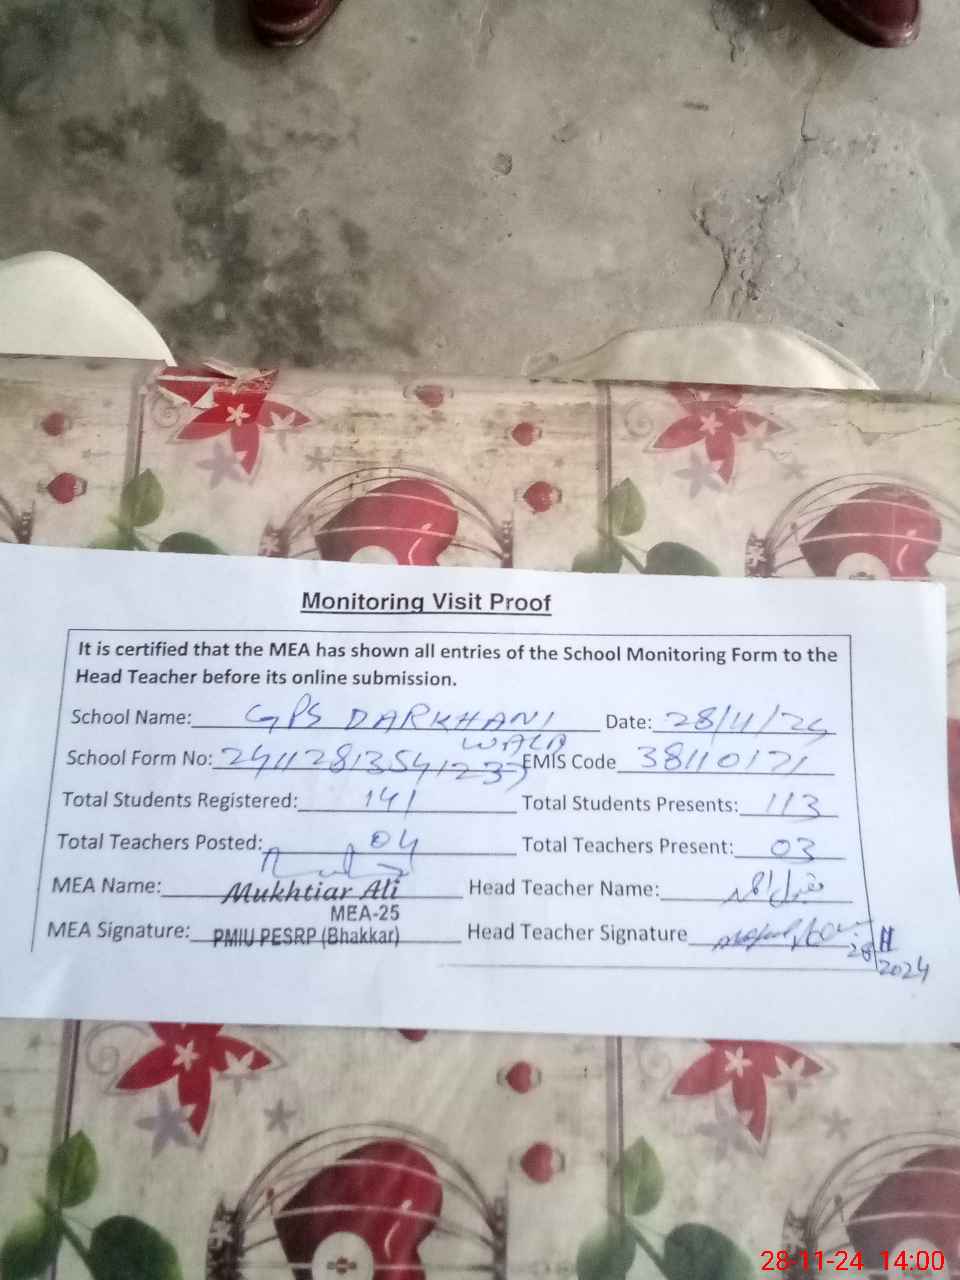 Monitoring Visit Proof
It is certified that the MEA has shown all entries of the School Monitoring Form to the
Head Teacher before its online submission.
School Name: GPS DARKHANI WALA Date: 28/11/24
School Form No: EMIS Code 38110171
Total Students Registered: 141 Total Students Presents: 113
Total Teachers Posted: 04 Total Teachers Present: 03
MEA Name: Mukhtiar Ali Head Teacher Name:
MEA-25
MEA Signature: PMIU PESRP (Bhakkar) Head Teacher Signature
28/11/2024
28-11-24 14:00